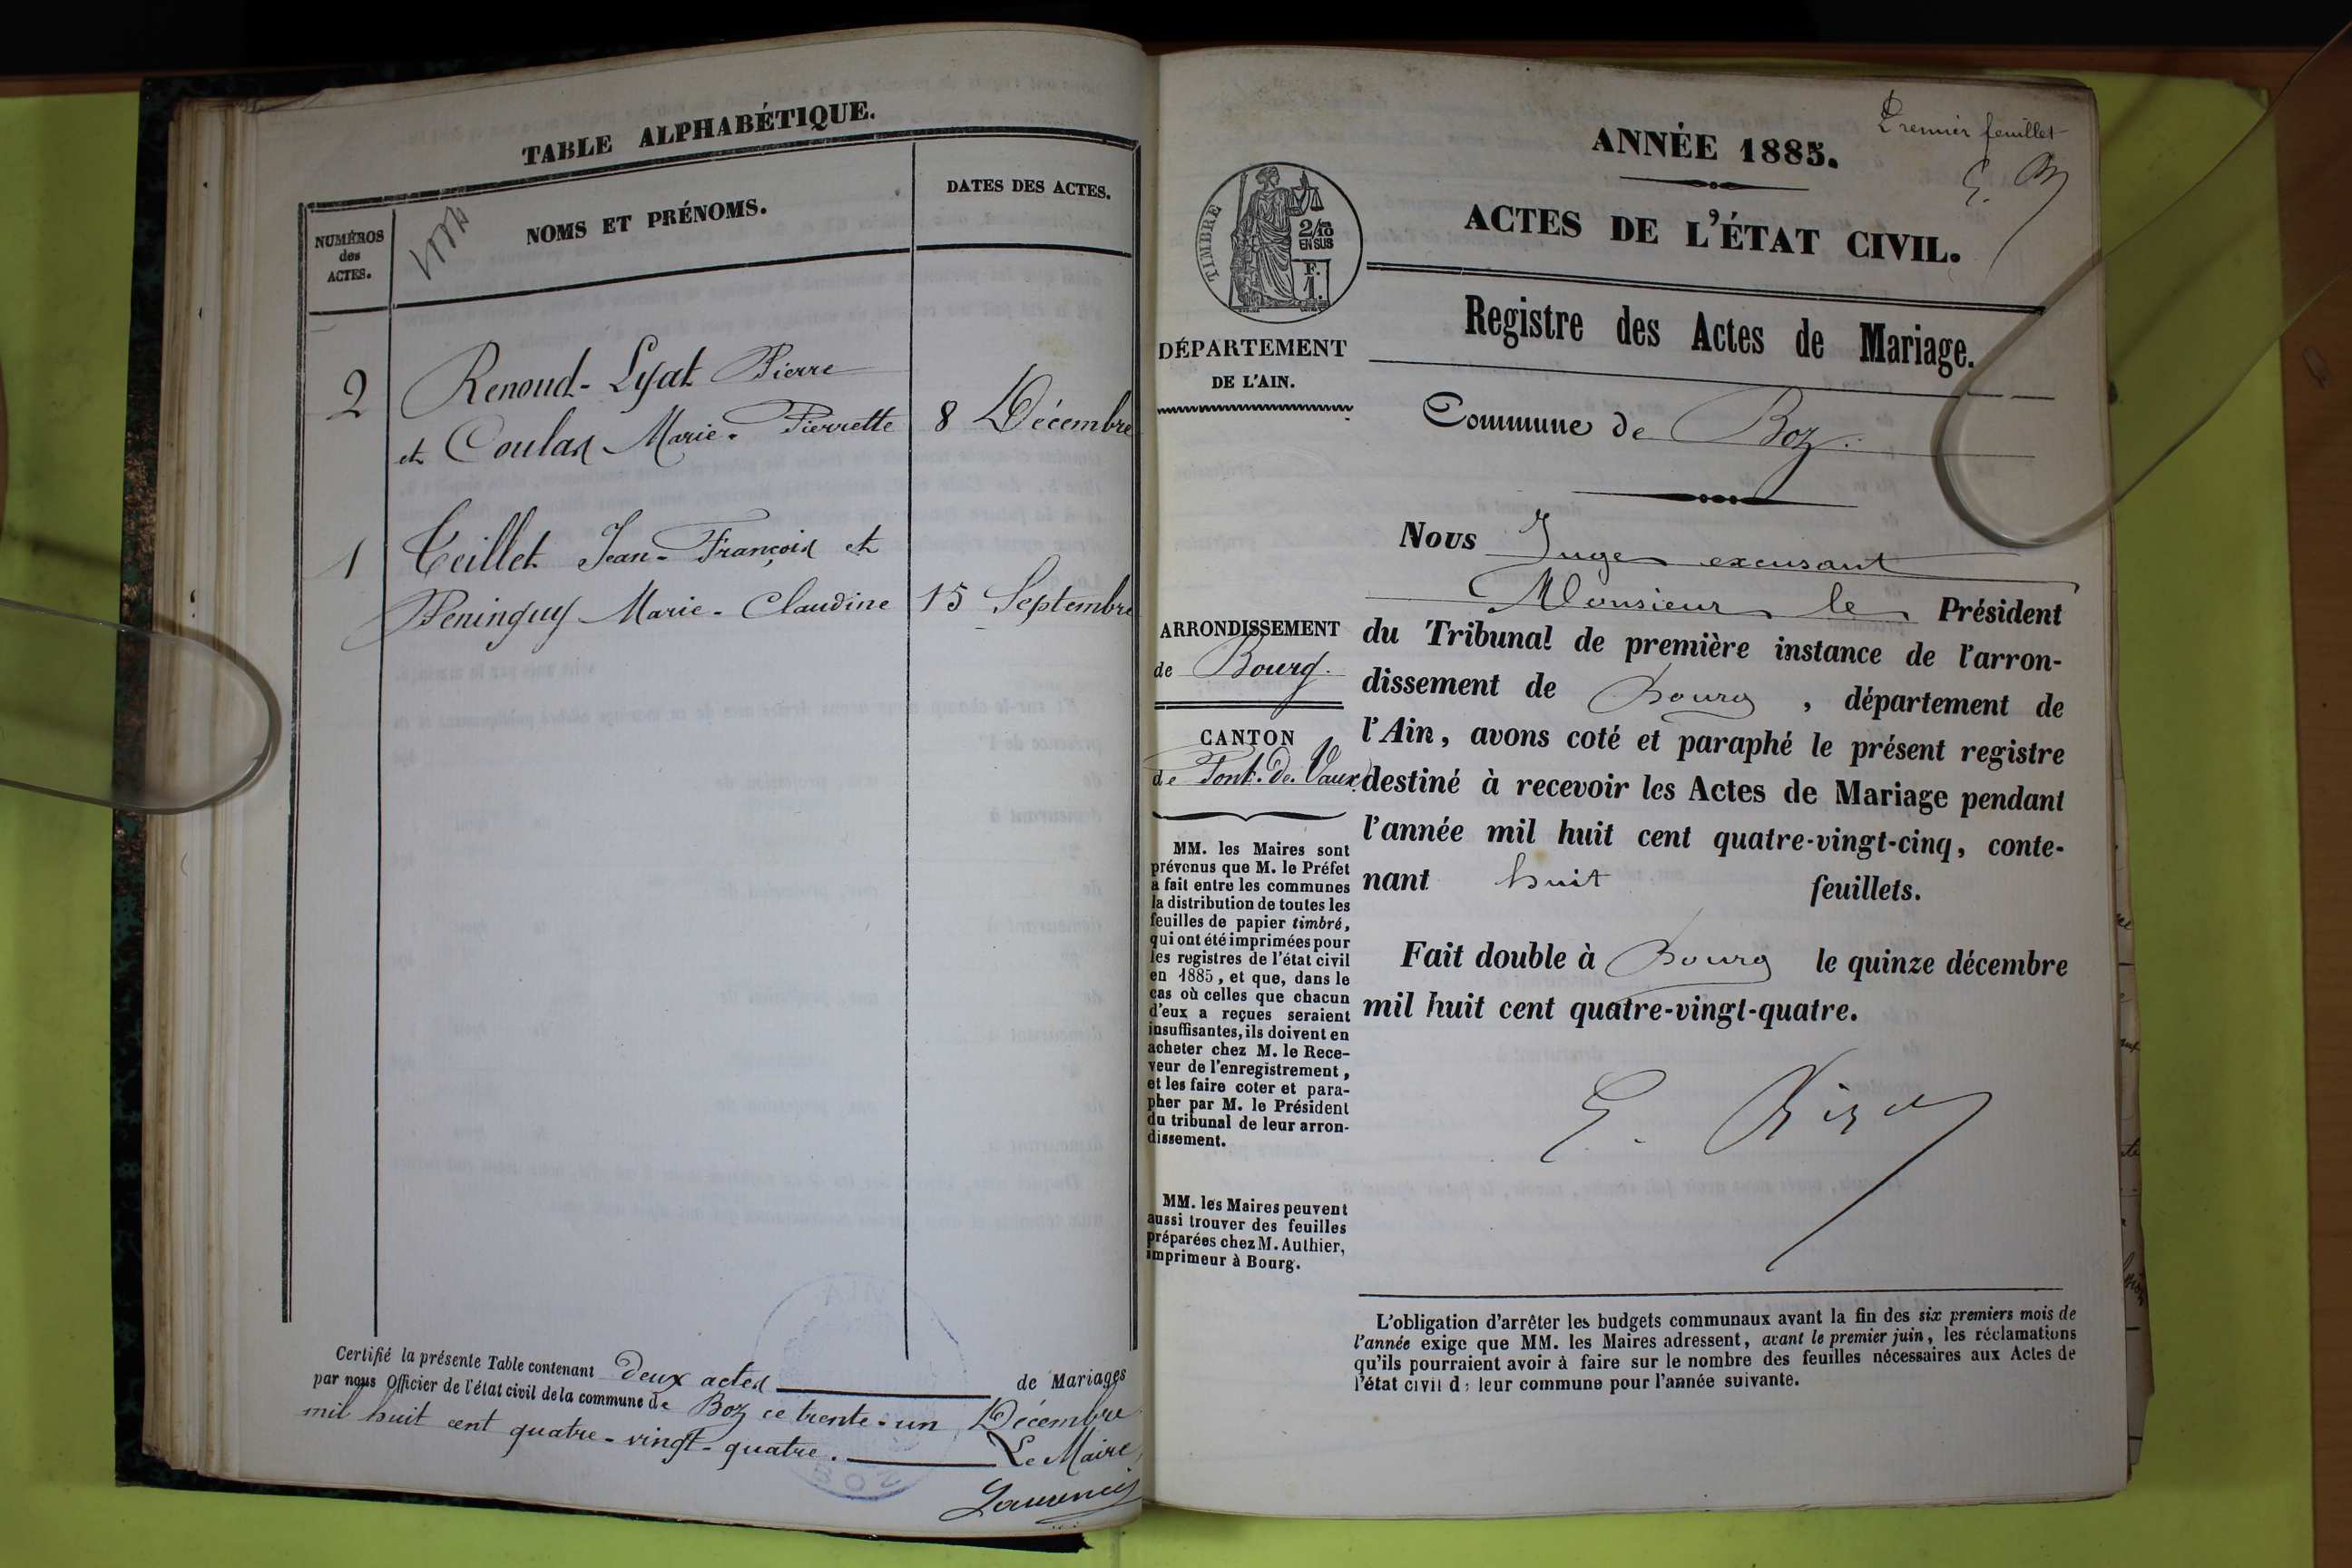 TABLE ALPHABÉTIQUE.
NUMÉROS
des
ACTES.
NOMS ET PRÉNOMS.
DATES DES ACTES.
2
Renoud-Lyat Pierre
et Coulas Marie-Pierrette
8 Décembre
1
Teillet Jean-François et
Peninguy Marie-Claudine
15 Septembre
Certifié la présente Table contenant deux actes de Mariages
par nous Officier de l'état civil de la commune de Boz ce trente-un Décembre
mil huit cent quatre-vingt-quatre.
Le Maire
BOZ
Premier feuillet
ANNÉE 1885.
ACTES DE L'ÉTAT CIVIL.
TIMBRE
2/10
EN SUS
F.
1.
DÉPARTEMENT
DE L'AIN.
ARRONDISSEMENT
de Bourg.
CANTON
de Pont-de-Vaux
MM. les Maires sont
prévenus que M. le Préfet
a fait entre les communes
la distribution de toutes les
feuilles de papier timbré,
qui ont été imprimées pour
les registres de l'état civil
en 1885, et que, dans le
cas où celles que chacun
d'eux a reçues seraient
insuffisantes, ils doivent en
acheter chez M. le Rece-
veur de l'enregistrement,
et les faire coter et para-
pher par M. le Président
du tribunal de leur arron-
dissement.
MM. les Maires peuvent
aussi trouver des feuilles
préparées chez M. Authier,
imprimeur à Bourg.
Registre des Actes de Mariage.
Commune de Boz.
Nous Juge excusant
Monsieur le Président
du Tribunal de première instance de l'arron-
dissement de Bourg, département de
l'Ain, avons coté et paraphé le présent registre
destiné à recevoir les Actes de Mariage pendant
l'année mil huit cent quatre-vingt-cinq, conte-
nant huit feuillets.
Fait double à Bourg le quinze décembre
mil huit cent quatre-vingt-quatre.
L'obligation d'arrêter les budgets communaux avant la fin des six premiers mois de
l'année exige que MM. les Maires adressent, avant le premier juin, les réclamations
qu'ils pourraient avoir à faire sur le nombre des feuilles nécessaires aux Actes de
l'état civil de leur commune pour l'année suivante.